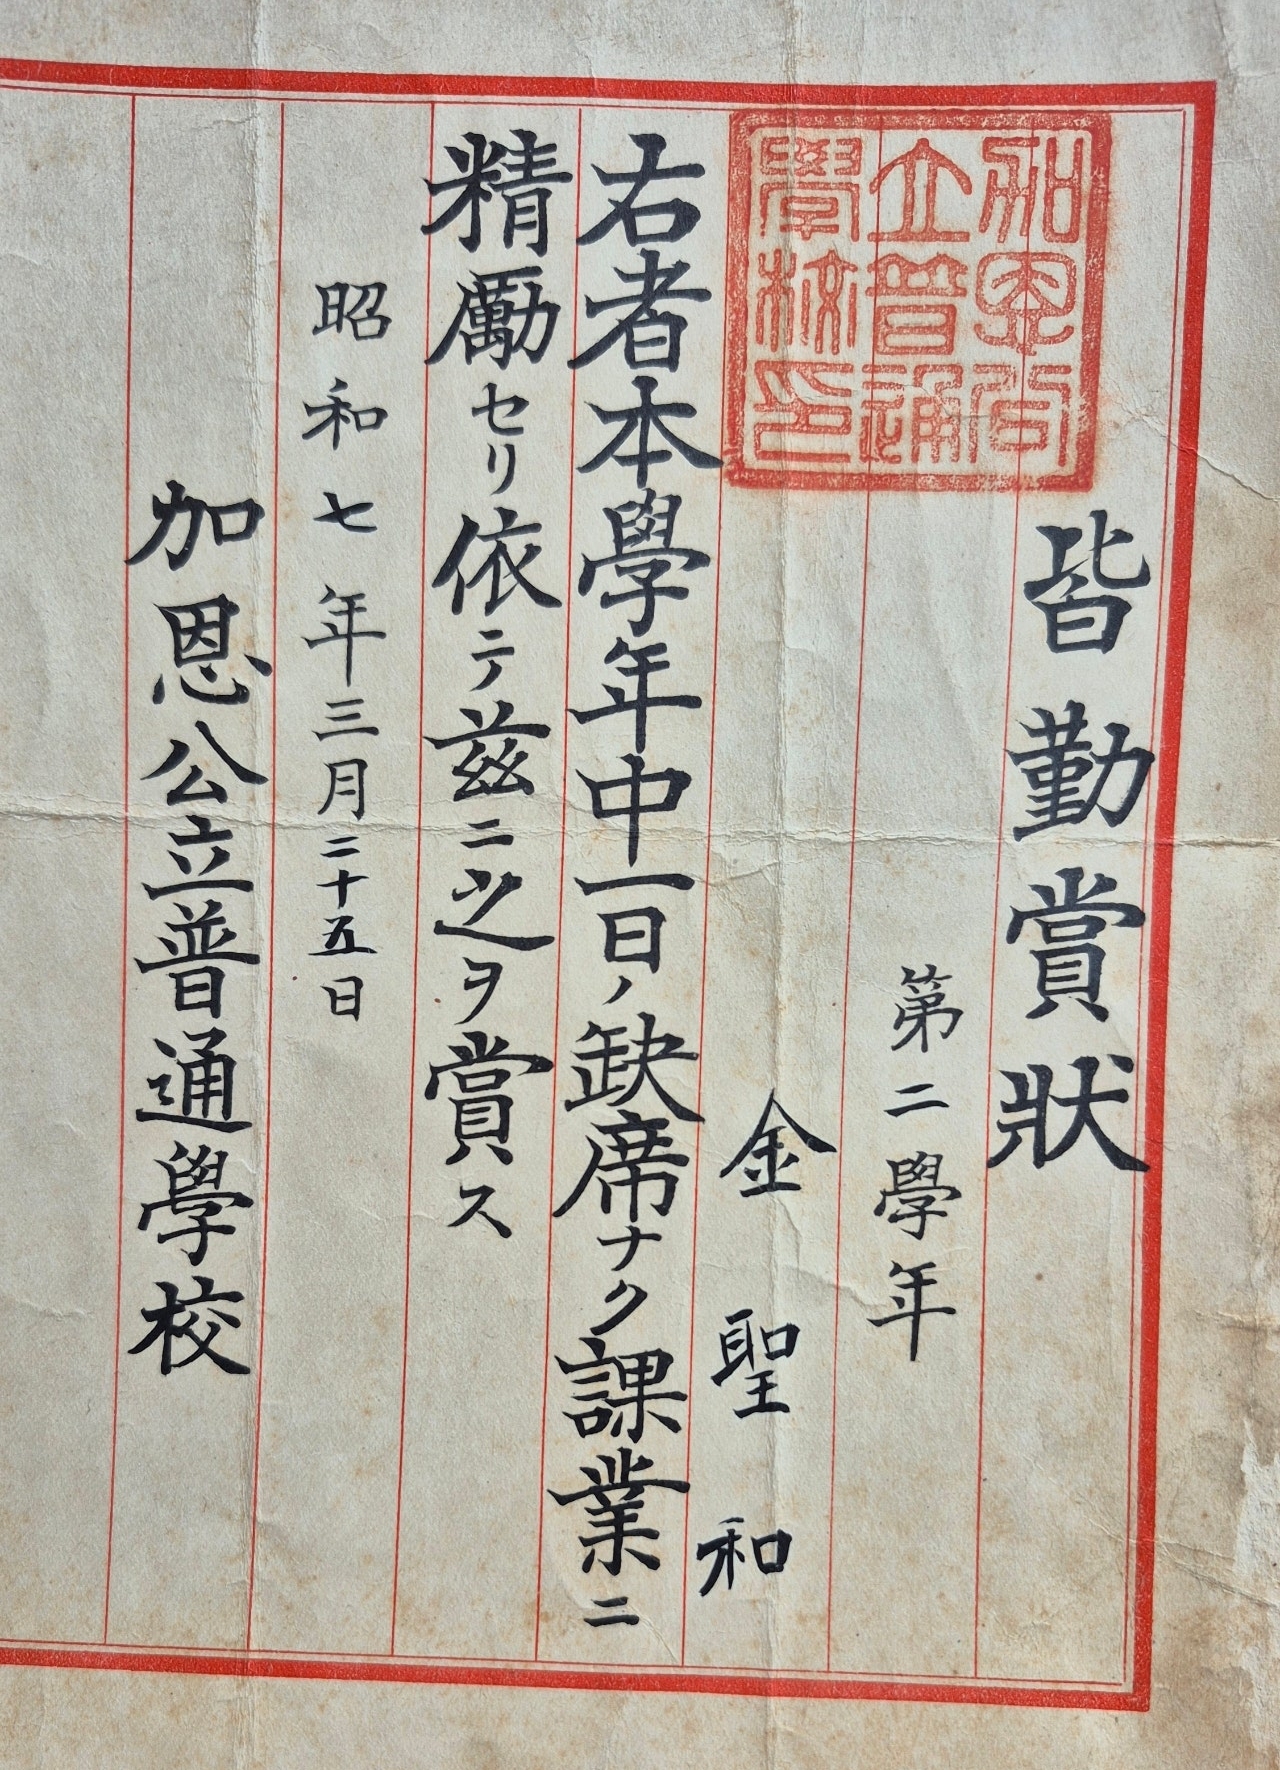 皆勤賞狀
第二學年
金聖和
右者本學年中一日ノ缺席ナク課業ニ
精勵セリ依テ茲ニ之ヲ賞ス
昭和七年三月二十五日
加恩公立普通學校
加恩公
立普通
學校印